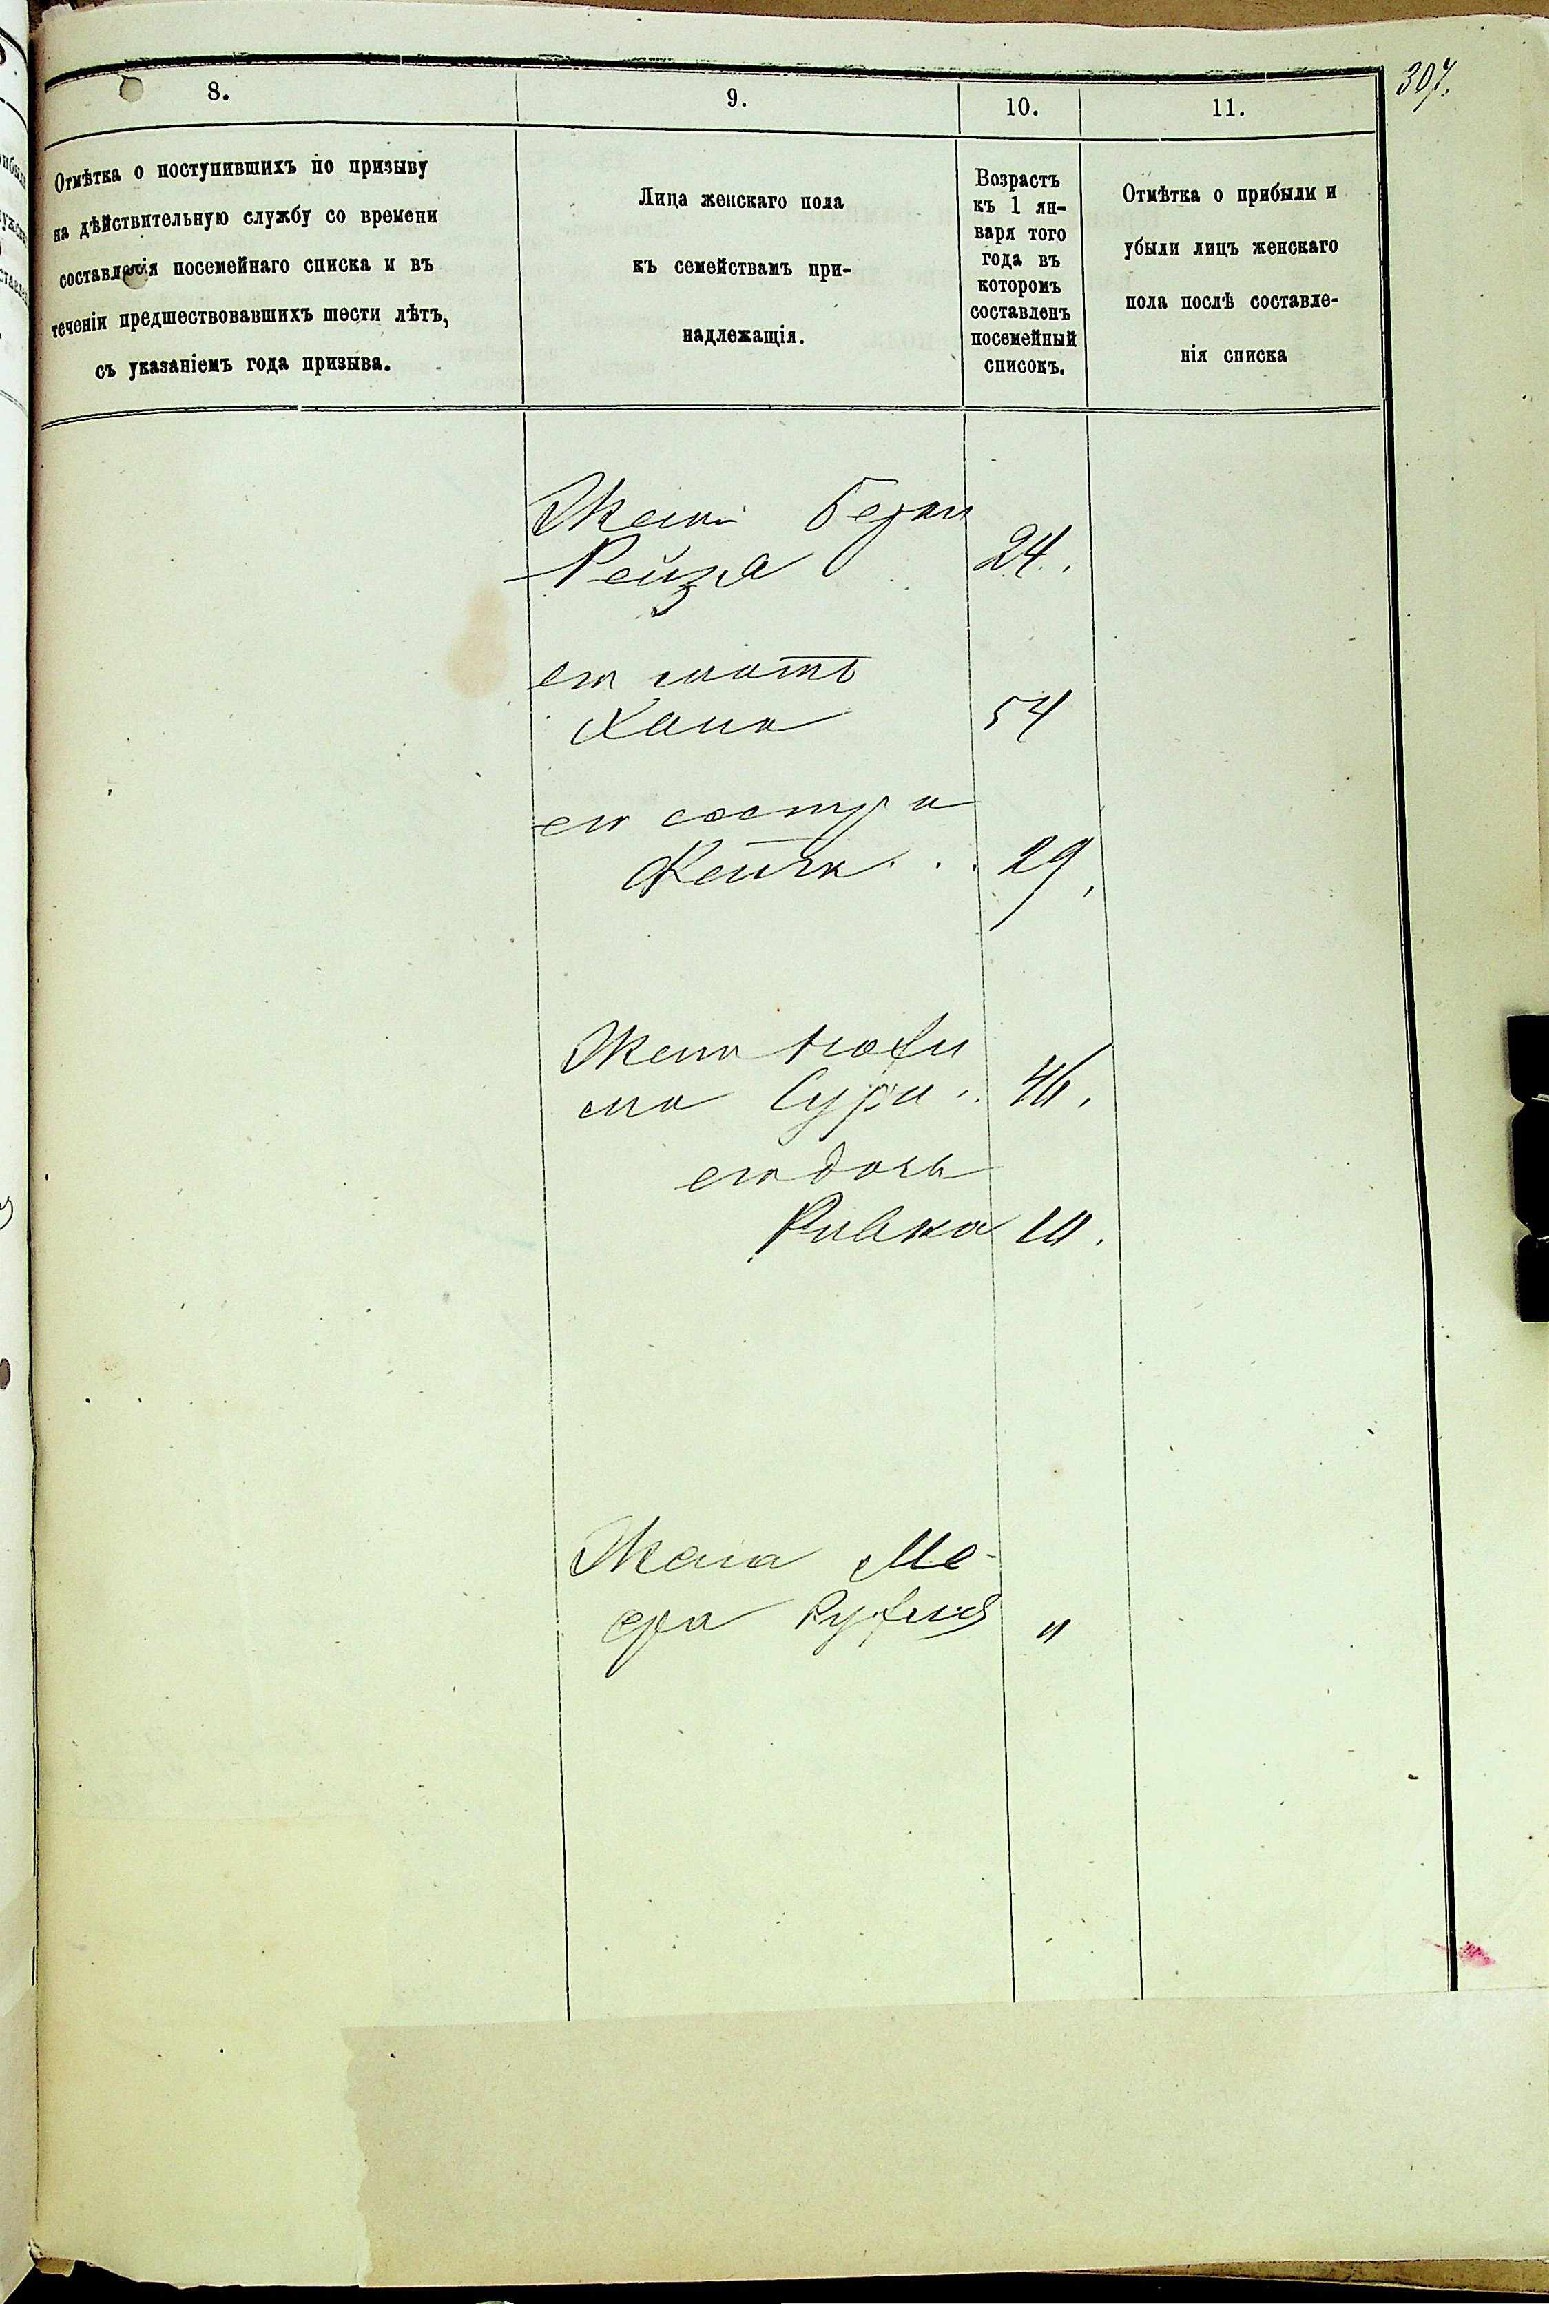 307.
8.
9.
10.
11.
Отмѣтка о поступившихъ по призыву
на дѣйствительную службу со времени
составленія посемейнаго списка и въ
теченіи предшествовавшихъ шести лѣтъ,
съ указаніемъ года призыва.
Лица женскаго пола
къ семействамъ при-
надлежащія.
Возрастъ
къ 1 ян-
варя того
года въ
которомъ
составленъ
посемейный
списокъ.
Отмѣтка о прибыли и
убыли лицъ женскаго
пола послѣ составле-
нія списка
Жена Берки
Рейза 24.
его мать
Хана 54
его сестра
29.
Жена
Сура 46.
его дочь
Ривка 10.
Жена Ме-
ера "